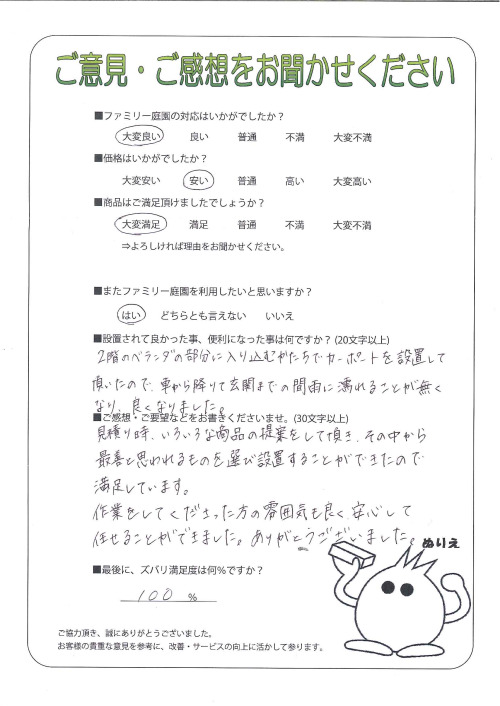 ご意見・ご感想をお聞かせください
■ファミリー庭園の対応はいかがでしたか？
大変良い 良い 普通 不満 大変不満
■価格はいかがでしたか？
大変安い 安い 普通 高い 大変高い
■商品はご満足頂けましたでしょうか？
大変満足 満足 普通 不満 大変不満
⇒よろしければ理由をお聞かせください。
■またファミリー庭園を利用したいと思いますか？
はい どちらとも言えない いいえ
■設置されて良かった事、便利になった事は何ですか？(20文字以上)
2階のベランダの部分に入り込むかたちでカーポートを設置して
頂いたので、車から降りて玄関までの間雨に濡れることが無く
なり、良くなりました。
■ご感想・ご要望などをお書きくださいませ。(30文字以上)
見積り時、いろいろな商品の提案をして頂き、その中から
最善と思われるものを選び設置することができたので
満足しています。
作業をしてくださった方の雰囲気も良く安心して
任せることができました。ありがとうございいました。
ぬりえ
■最後に、ズバリ満足度は何％ですか？
100 ％
ご協力頂き、誠にありがとうございました。
お客様の貴重な意見を参考に、改善・サービスの向上に活かして参ります。